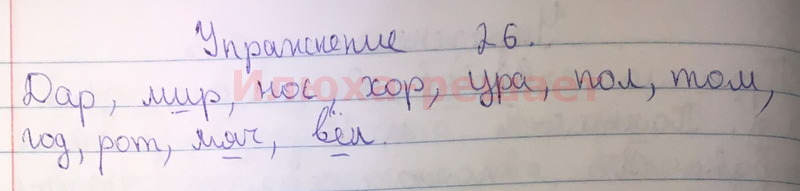 Упражнение 26.
Дар, мир, нос, хор, ура, пол, том,
год, рот, мяч, вёл.
Илюха решает